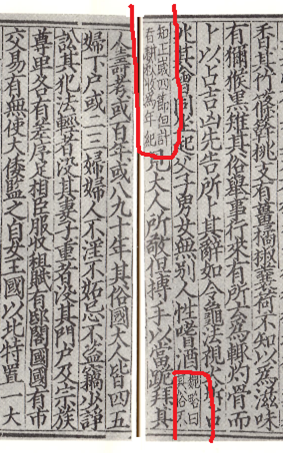 香其竹篠簳桃支有薑橘椒蘘荷不知以爲滋味
有獼猴黑雉其俗舉事行來有所云爲輒灼骨而
卜以占吉凶先告所卜其辭如令龜法視火坼占
兆其會同坐起父子男女無別人性嗜酒魏略曰其俗不
知正歲四節但計春耕秋收爲年紀見大人所敬但搏手以當跪拜其
人壽考或百年或八九十年其俗國大人皆四五
婦下戶或二三婦婦人不淫不妒忌不盜竊少諍
訟其犯法輕者沒其妻子重者沒其門戶及宗族
尊卑各有差序足相臣服收租賦有邸閣國國有市
交易有無使大倭監之自女王國以北特置一大